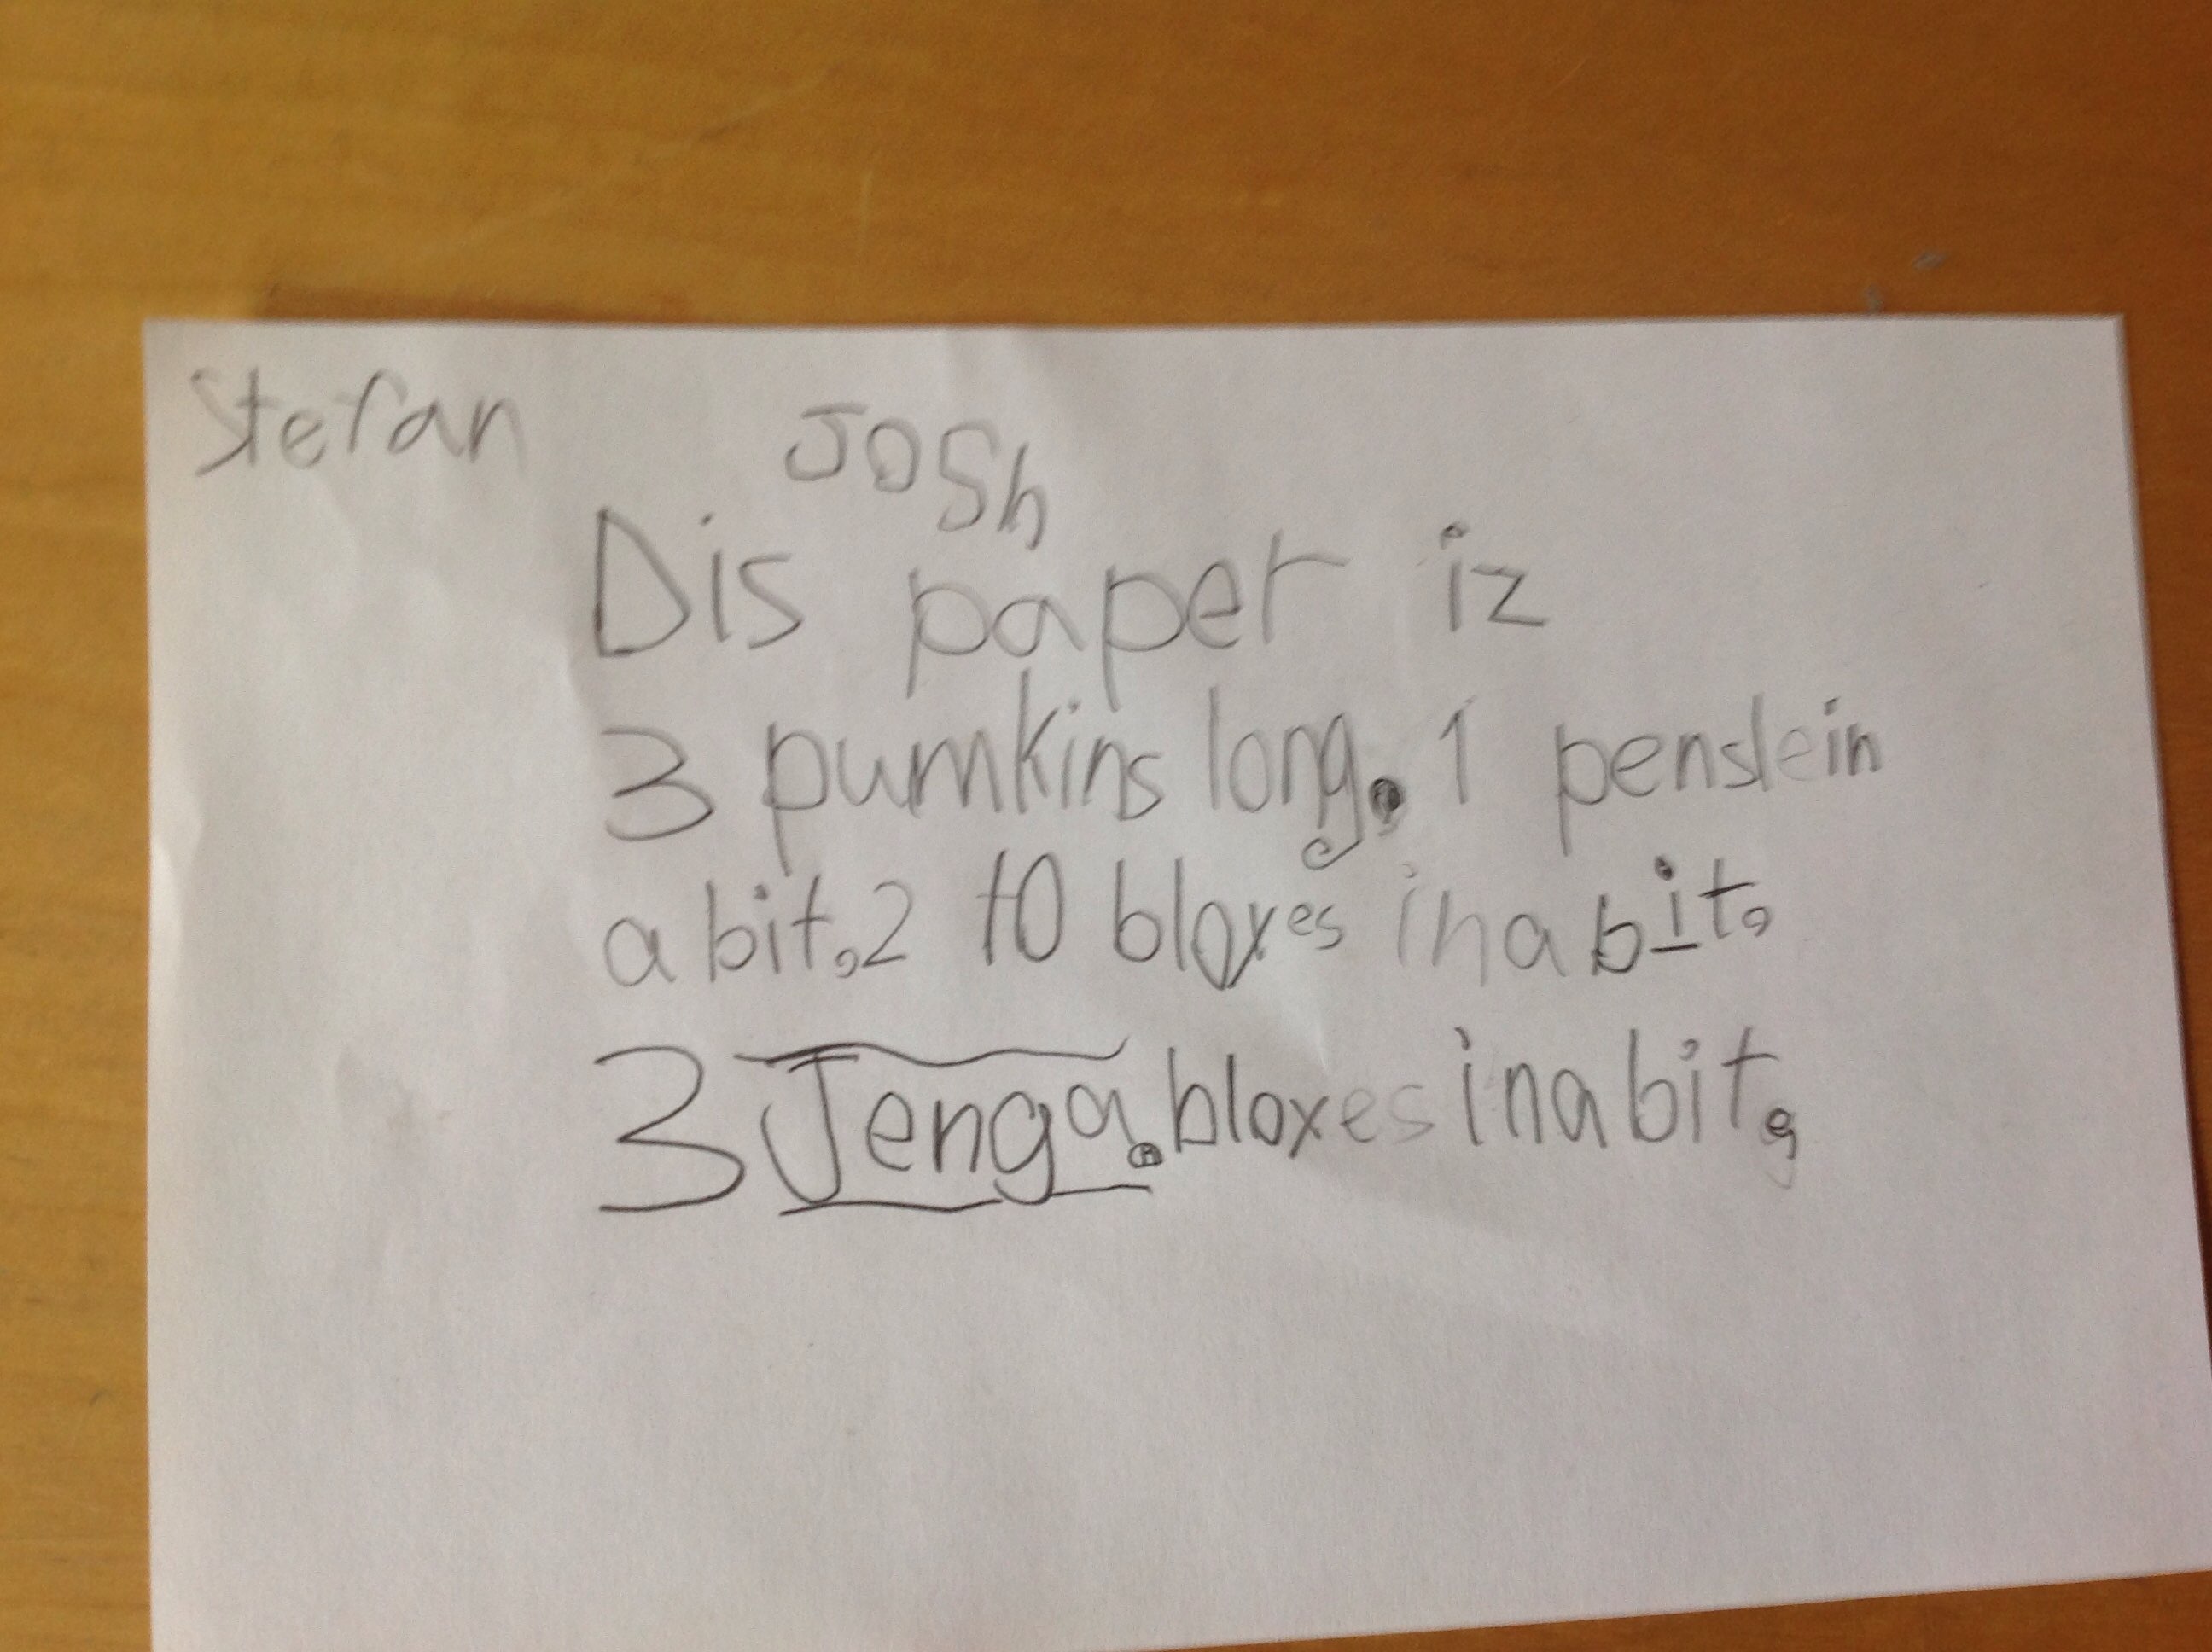 Stefan JOSh
Dis paper iz
3 pumkins long. 1 penslein
a bit. 2 10 bloxes in a bit.
3 Jenga. bloxes in a bit,